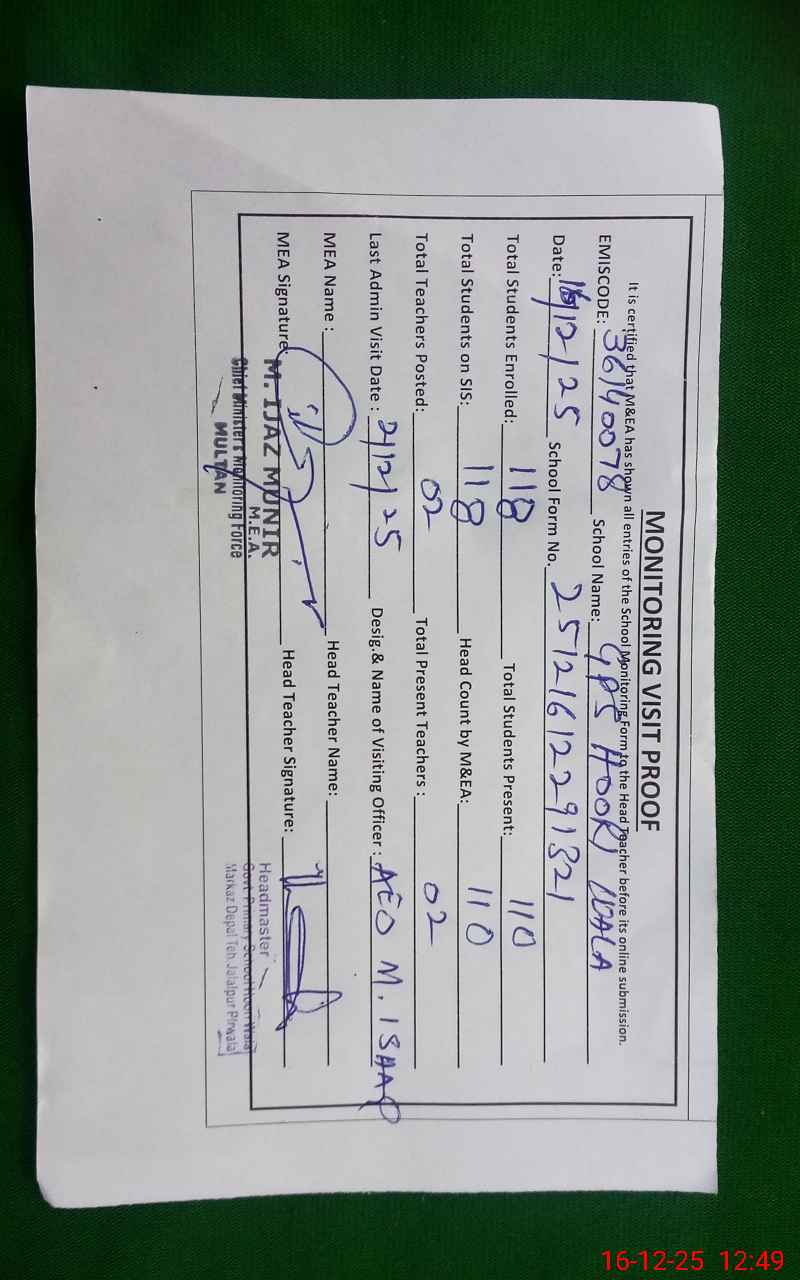 MONITORING VISIT PROOF
It is certified that M&EA has shown all entries of the School Monitoring Form to the Head Teacher before its online submission.
EMISCODE: 36140078 School Name: GPS HOORI WALA
Date: 16/12/25 School Form No. 251216122291321
Total Students Enrolled: 118 Total Students Present: 110
Total Students on SIS: 118 Head Count by M&EA: 110
Total Teachers Posted: 02 Total Present Teachers : 02
Last Admin Visit Date : 2/12/25 Desig.& Name of Visiting Officer : AEO M. ISHAQ
MEA Name : Head Teacher Name:
MEA Signature Head Teacher Signature:
M. IJAZ MUNIR
M.E.A.
Chief Minister's Monitoring Force
MULTAN
Headmaster
Govt Primary School Hoori Wala
Markaz Depal Teh Jalalpur Pirwala
16-12-25 12:49